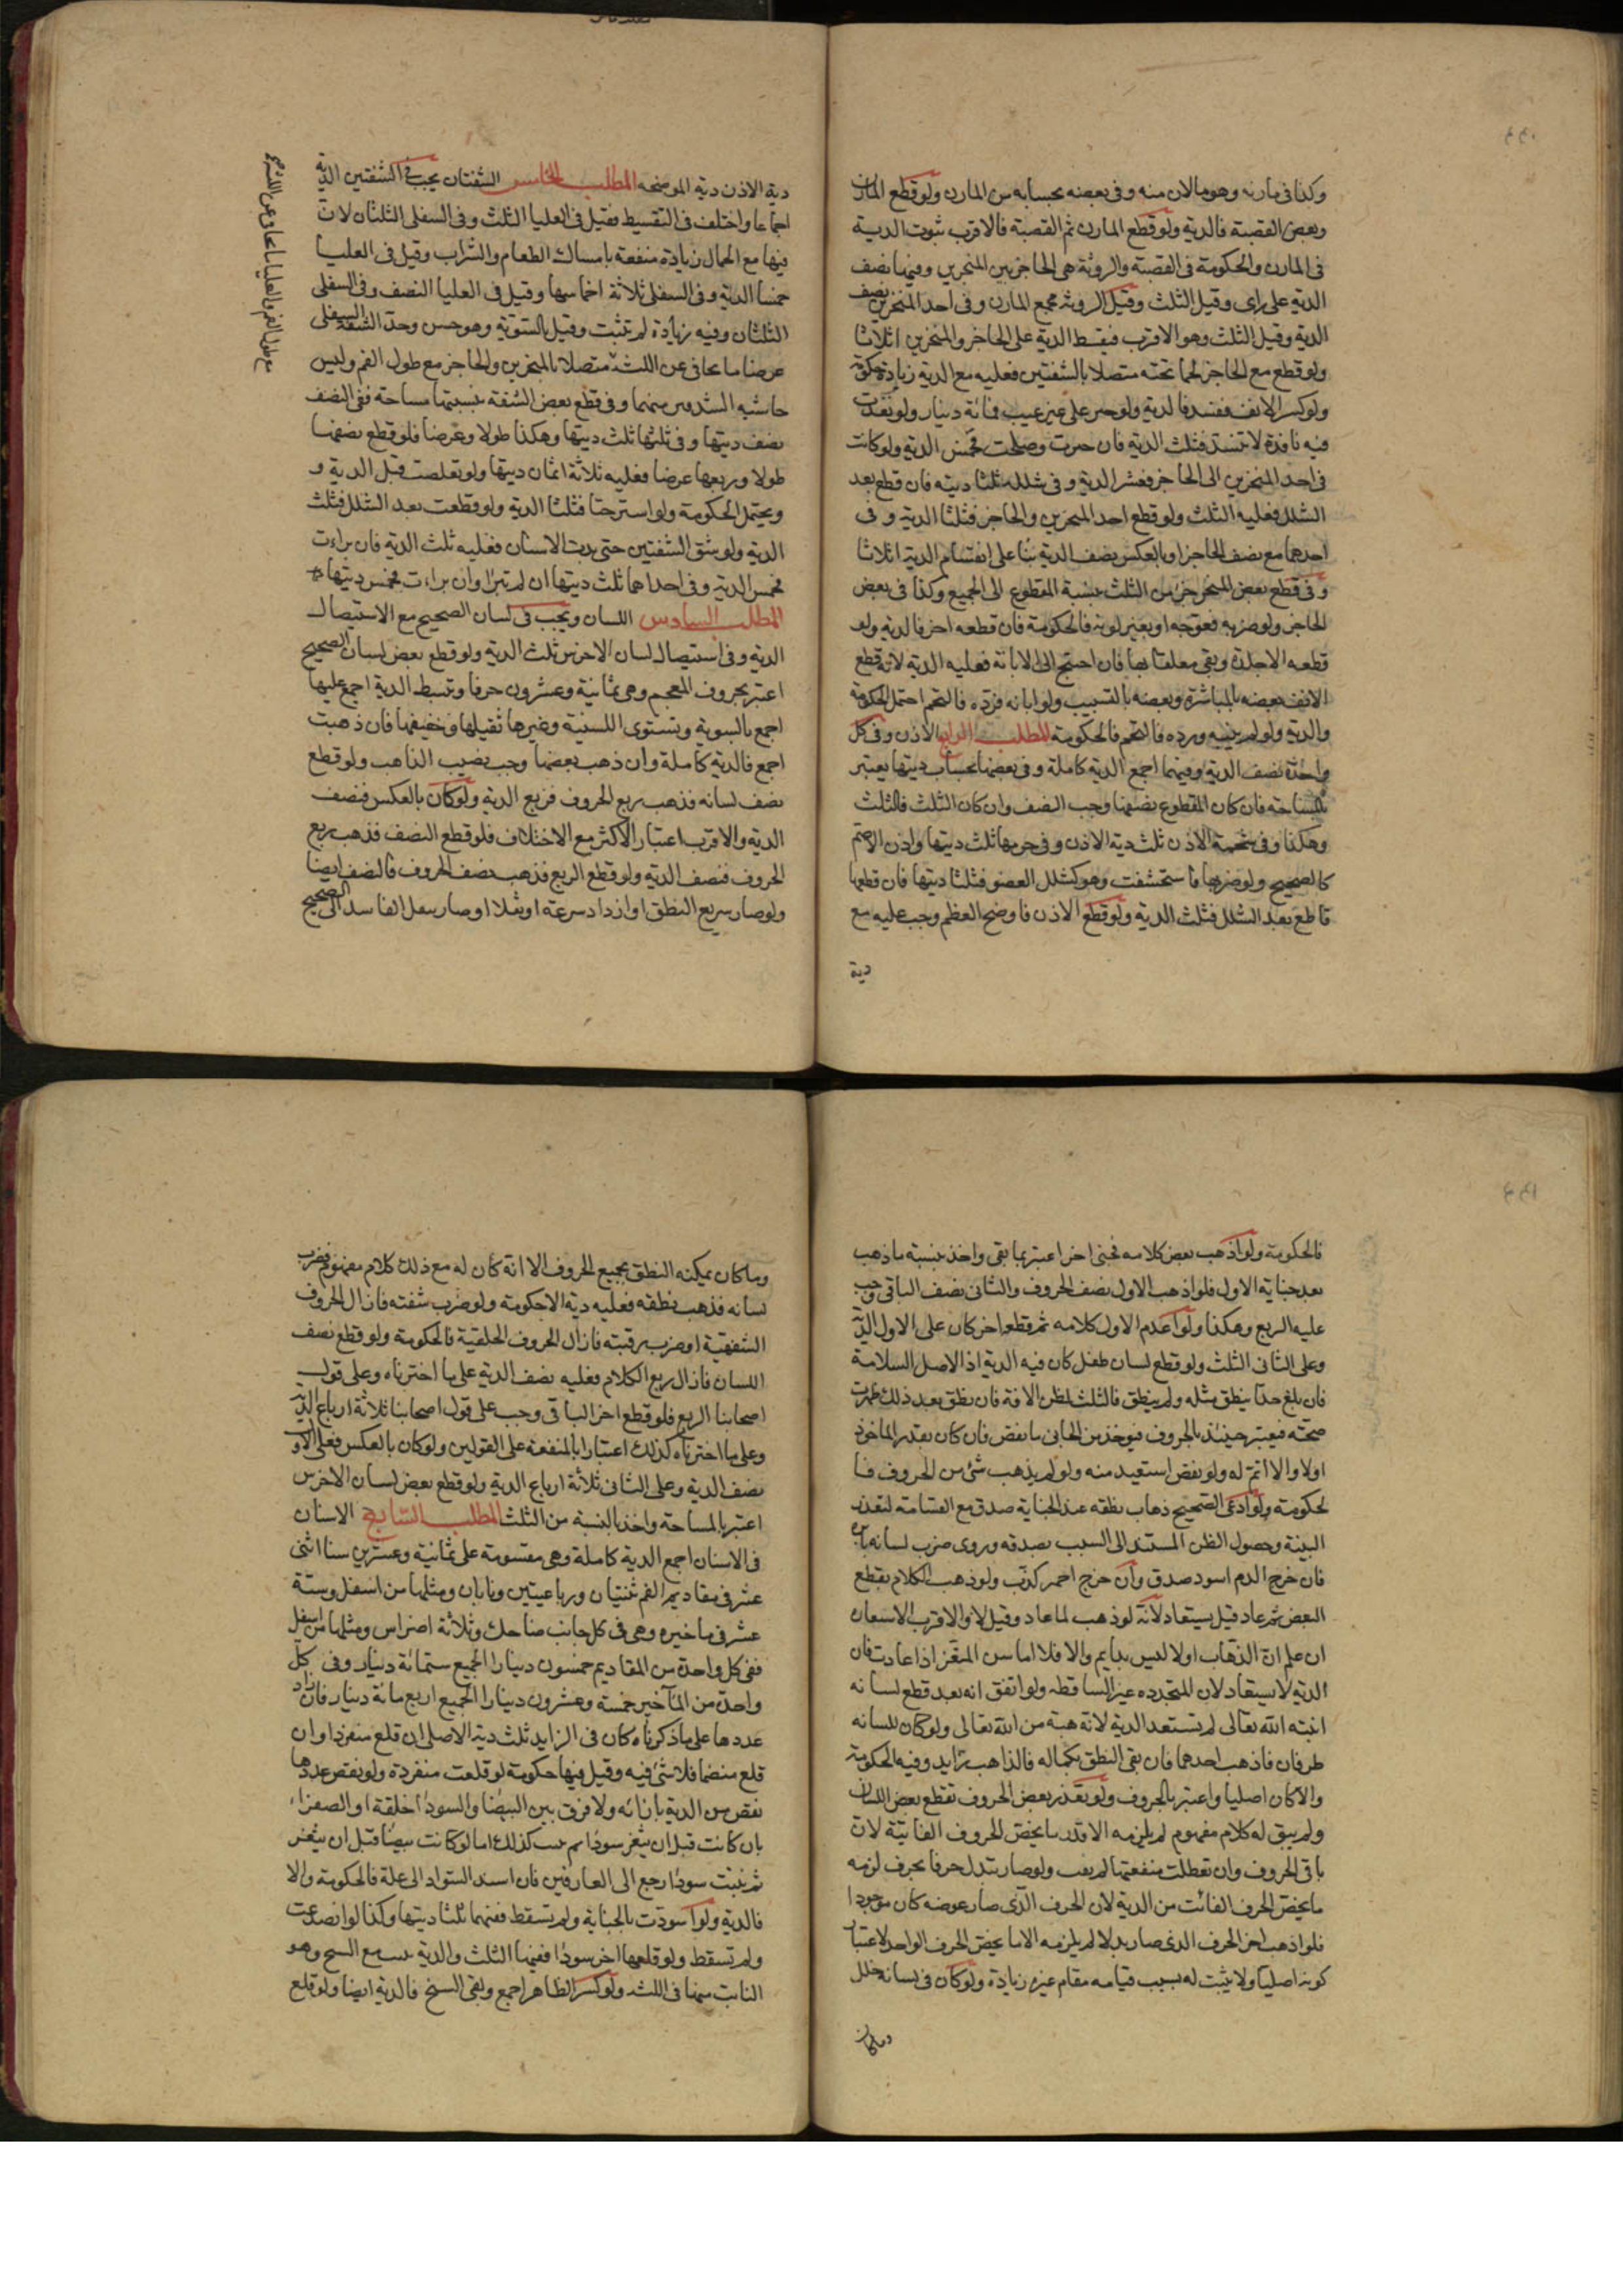 وكذا في مارنه وهو مالان منه وفي بعضه بحسابه من المارن ولو قطع المارن
وبعض القصبة فالدية ولو قطع المارن ثم القصبة فالاقرب ثبوت الدية
في المارن والحكومة في القصبة والروثة هي الحاجز بين المنخرين وفيها نصف
الدية على راى وقيل الثلث وقيل الروثه مجمع المارن وفي احد المنخرين نصف
الدية وقيل الثلث وهو الاقرب فيقسط الدية على الحاجز والمنخرين اثلاثا
ولو قطع مع الحاجز لحما تحته متصلا بالشفتين فعليه مع الدية زيادة حكومة
ولو كسر الانف ففسد فالدية ولو جبر على غير عيب فمائة دينار ولو نفذت
فيه نافذة لا تنسد فثلث الدية فان جبرت وصلحت فخمس الدية ولو كانت
في احد المنخرين الى الحاجز فعشر الدية وفي شلله ثلثا ديته فان قطع بعد
الشلل فعليه الثلث ولو قطع احد المنخرين والحاجز فثلثا الدية وفي
احدهما مع نصف الحاجز او بالعكس نصف الدية بناء على انقسام الدية اثلاثا
وفي قطع بعض المنخر جزء من الثلث بنسبة المقطوع الى الجميع وكذا في بعض
الحاجز ولو ضربه فعوجه او تغير لونه فالحكومة فان قطعه اخر فالدية ولو
قطعه الا جلدة وبقي معلقا بها فان احتيج الى الابانة فعليه الدية لانه قطع
الانف بعضه بالمباشرة وبعضه بالتسبيب ولو ابانه فرده فالتحم احتمل الحكومة
والدية ولو لم يبنه ورده فالتحم فالحكومة المطلب الرابع الاذن وفي كل
واحدة نصف الدية وفيهما اجمع الدية كاملة وفي بعضها بحساب ديتها يعتبر
بالمساحة فان كان المقطوع نصفها وجب النصف وان كان الثلث فالثلث
وهكذا وفي شحمة الاذن ثلث دية الاذن وفي خرمها ثلث ديتها واذن الاصم
كالصحيح ولو ضربها فاستحشفت وهو كشلل العضو فثلثا ديتها فان قطعها
قاطع بعد الشلل فثلث الدية ولو قطع الاذن فاوضح العظم وجب عليه مع
دية
دية الاذن دية الموضحه المطلب الخامس الشفتان يجب في الشفتين الدية
اجماعا واختلف في التقسيط فقيل في العليا الثلث وفي السفلى الثلثان لان
فيها مع الجمال زيادة منفعة بامساك الطعام والشراب وقيل في العليا
خمسا الدية وفي السفلى ثلاثة اخماسها وقيل في العليا النصف وفي السفلى
الثلثان وفيه زيادة لم تثبت وقيل بالسوية وهو حسن وحد الشفة السفلى
عرضا ما تجافى عن اللثة متصلا بالمنخرين والحاجز مع طول الفم وليس
حاشية الشدقين منهما وفي قطع بعض الشفة بنسبتها مساحة ففي النصف
نصف ديتها وفي ثلثها ثلث ديتها وهكذا طولا وعرضا فلو قطع نصفها
طولا وربعها عرضا فعليه ثلاثة اثمان ديتها ولو تقلصت قيل الدية و
ويحتمل الحكومة ولو استرختا فثلثا الدية ولو قطعت بعد الشلل فثلث
الدية ولو شق الشفتين حتى بدت الاسنان فعليه ثلث الدية فان برات
فخمس الدية وفي احداهما ثلث ديتها ان لم تبرا وان برات فخمس ديتها
المطلب السادس اللسان ويجب في لسان الصحيح مع الاستيصال
الدية وفي استيصال لسان الاخرس ثلث الدية ولو قطع بعض لسان الصحيح
اعتبر بحروف المعجم وهي ثمانية وعشرون حرفا وتبسط الدية اجمع عليها
اجمع بالسوية وتستوي اللسنية وغيرها ثقيلها وخفيفها فان ذهبت
اجمع فالدية كاملة وان ذهب بعضها وجب نصيب الذاهب ولو قطع
نصف لسانه فذهب ربع الحروف فربع الدية ولو كان بالعكس فنصف
الدية والاقرب اعتبار الاكثر مع الاختلاف فلو قطع النصف فذهب ربع
الحروف فنصف الدية ولو قطع الربع فذهب نصف الحروف فالنصف ايضا
ولو صار سريع النطق او ازداد سرعة او ثقلا او صار ينقل الفاسد الى الصحيح
فالحكومة ولو اذهب بعض كلامه فجنى اخر اعتبر بما بقي واخذ بنسبة ما ذهب
بعد جناية الاول فلو اذهب الاول نصف الحروف والثاني نصف الباقي وجب
عليه الربع وهكذا ولو اعدم الاول كلامه ثم قطعه اخر كان على الاول الدية
وعلى الثاني الثلث ولو قطع لسان طفل كان فيه الدية اذ الاصل السلامة
فان بلغ حدا ينطق مثله ولم ينطق فالثلث لظن الافة فان نطق بعد ذلك ظهرت
صحته فيعتبر حينئذ بالحروف فيوخذ من الجاني ما نقص فان كان بقدر الماخوذ
اولا والا اتم له ولو نقص استعيد منه ولو لم يذهب شئ من الحروف فا
لحكومة ولو ادعى الصحيح ذهاب نطقه عند الجناية صدق مع القسامة لتعذر
البينة وحصول الظن المستند الى السبب بصدقه وروي ضرب لسانه بابرة
فان خرج الدم اسود صدق وان خرج احمر كذب ولو ذهب الكلام بقطع
البعض ثم عاد قيل يستعاد لانه لو ذهب لما عاد وقيل لا والاقرب الاستعادة
ان علم ان الذهاب اولا ليس بدايم والا فلا اما سن المثغر اذا عادت فان
الدية لا تستعاد لان المتجددة غير الساقطة ولو اتفق انه بعد قطع لسانه
انبته الله تعالى لم تستعد الدية لانه هبة من الله تعالى ولو كان للسانه
طرفان فاذهب احدهما فان بقي النطق بكماله فالذاهب زايد وفيه الحكومة
والا كان اصليا واعتبر بالحروف ولو تعذر بعض الحروف بقطع بعض اللسان
ولم يبق له كلام مفهوم لم يلزمه الا قدر ما يخص الحروف الفائتة لان
باقي الحروف وان تعطلت منفعتها لم يفت ولو صار يبدل حرفا بحرف لزمه
ما يخص الحرف الفائت من الدية لان الحرف الذي صار عوضه كان موجودا
فلو اذهب اخر الحرف الذي صار بدلا لم يلزمه الا ما يخص الحرف الواحد لاعتبار
كونه اصليا ولا يثبت له بسبب قيامه مقام غيره زيادة ولو كان في لسانه خلل
وما كان
وما كان يمكنه النطق بجميع الحروف الا انه كان له مع ذلك كلام مفهوم فضرب
لسانه فذهب نطقه فعليه دية الا حكومة ولو ضرب شفته فازال الحروف
الشفهية او ضرب رقبته فازال الحروف الحلقية فالحكومة ولو قطع نصف
اللسان فازال ربع الكلام فعليه نصف الدية على ما اخترناه وعلى قول
اصحابنا الربع فلو قطع اخر الباقي وجب على قول اصحابنا ثلاثة ارباع الدية
وعلى ما اخترناه كذلك اعتبارا بالمنفعة على القولين ولو كان بالعكس فعلى الاول
نصف الدية وعلى الثاني ثلاثة ارباع الدية ولو قطع بعض لسان الاخرس
اعتبر بالمساحة واخذ بالنسبة من الثلث المطلب السابع الاسنان
في الاسنان اجمع الدية كاملة وهي مقسومة على ثمانية وعشرين سنا اثنى
عشر في مقاديم الفم ثنيتان ورباعيتين ونابان ومثلها من اسفل وستة
عشر في ماخيره وهي في كل جانب ضاحك وثلاثة اضراس ومثلها من اسفل
ففي كل واحدة من المقاديم خمسون دينارا الجميع ستمائة دينار وفي كل
واحدة من المآخير خمسة وعشرون دينارا الجميع اربع مائة دينار فان زاد
عددها على ما ذكرناه كان في الزايد ثلث دية الاصلي ان قلع منفردا وان
قلع منضما فلا شئ فيه وقيل فيها حكومة لو قلعت منفردة ولو نقص عددها
نقص من الدية بازائه ولا فرق بين البيضا والسودا خلقة او الصفراء
بان كانت قبل ان يثغر سودا ثم نبتت كذلك اما لو كانت بيضا قبل ان يثغر
ثم نبتت سودا رجع الى العارفين فان اسند السواد الى علة فالحكومة والا
فالدية ولو اسودت بالجناية ولم تسقط ففيها ثلثا ديتها وكذا لو انصدعت
ولم تسقط ولو قلعها اخر سودا ففيها الثلث والدية مع السنخ وهو
النابت منها في اللثة ولو كسر الظاهر اجمع وبقى السنخ فالدية ايضا ولو قلع